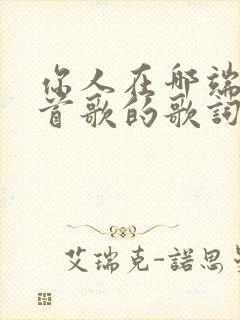 你人在那端
首歌的歌詞
艾瑞克-諾思